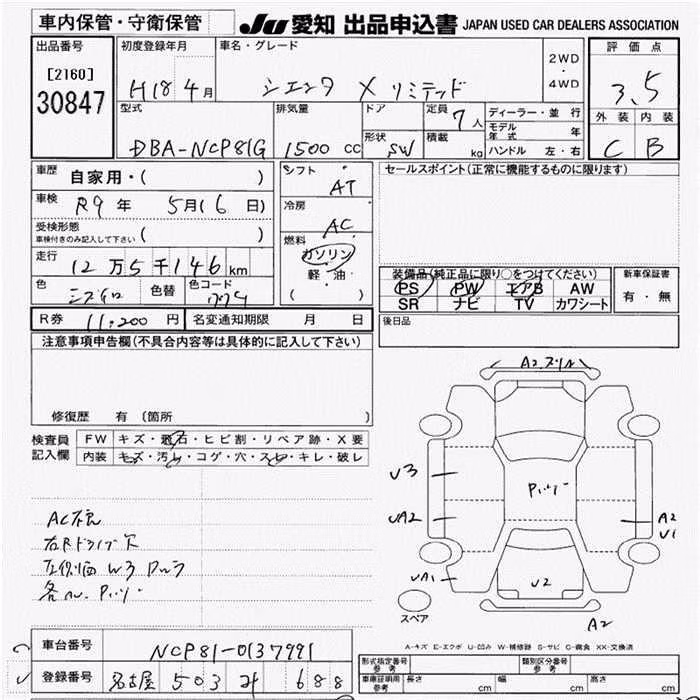 車内保管・守衛保管
JU 愛知 出品申込書 JAPAN USED CAR DEALERS ASSOCIATION
出品番号
[2160]
30847
初度登録年月
H18 4月
車名・グレード
シエンタ Xリミテッド
2WD
・
4WD
評価点
3.5
外装 内装
C B
型式
DBA-NCP81G
排気量
1500 cc
ドア
形状
SW
定員
7人
積載
kg
ディーラー・並行
モデル年式 年
ハンドル 左・右
車歴
自家用・( )
車検
R9年 5月(6日)
受検形態
車検付きのみ記入して下さい ( )
走行
12万5千146km
色
色替
色コード
シフト
AT
冷房
AC
燃料
ガソリン
軽・油・
( )
セールスポイント(正常に機能するものに限ります)
装備品(純正品に限り○をつけてください)
PS PW エアB AW
SR ナビ TV カワシート
新車保証書
有・無
後日品
R券 11,200円
名変通知期限 月 日
注意事項申告欄(不具合内容等は具体的に記入して下さい)
修復歴 有 (箇所
検査員
記入欄
FW キズ・飛石・ヒビ割・リペア跡・X要
内装 キズ・汚れ・コゲ・穴・スレ・キレ・破レ
AC不良
左側面 W3
A2
U3
UA2
UA1
U2
A2
U1
A2
スペア
A-キズ E-エクボ U-凹み W-補修跡 S-サビ C-腐食 XX-交換済
車台番号
NCP81-0137991
登録番号
名古屋 503 688
型式指定番号
参考
類別区分番号
参考
車庫証明用
参考
長さ cm
幅 cm
高さ cm